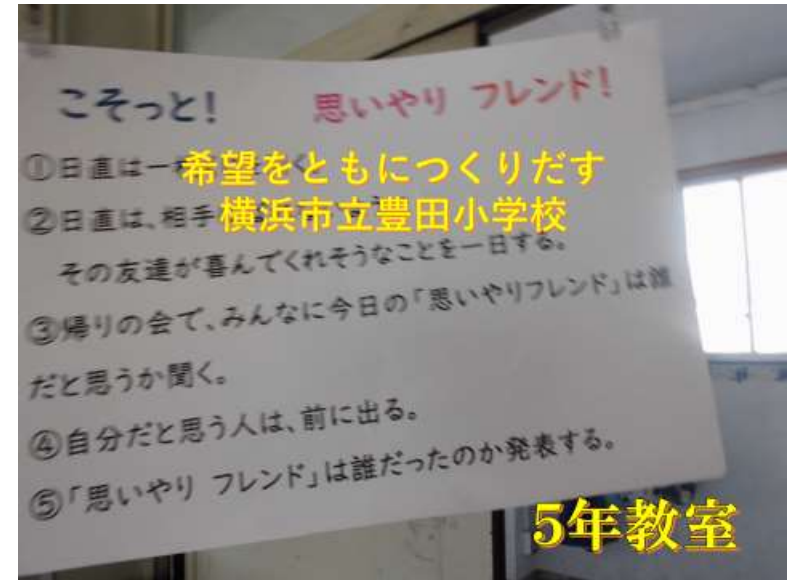 こそっと! 思いやり フレンド!
①日直は一
希望をともにつくりだす
②日直は、相手
横浜市立豊田小学校
その友達が喜んでくれそうなことを一日する。
③帰りの会で、みんなに今日の「思いやりフレンド」は誰
だと思うか聞く。
④自分だと思う人は、前に出る。
⑤「思いやり フレンド」は誰だったのか発表する。
5年教室